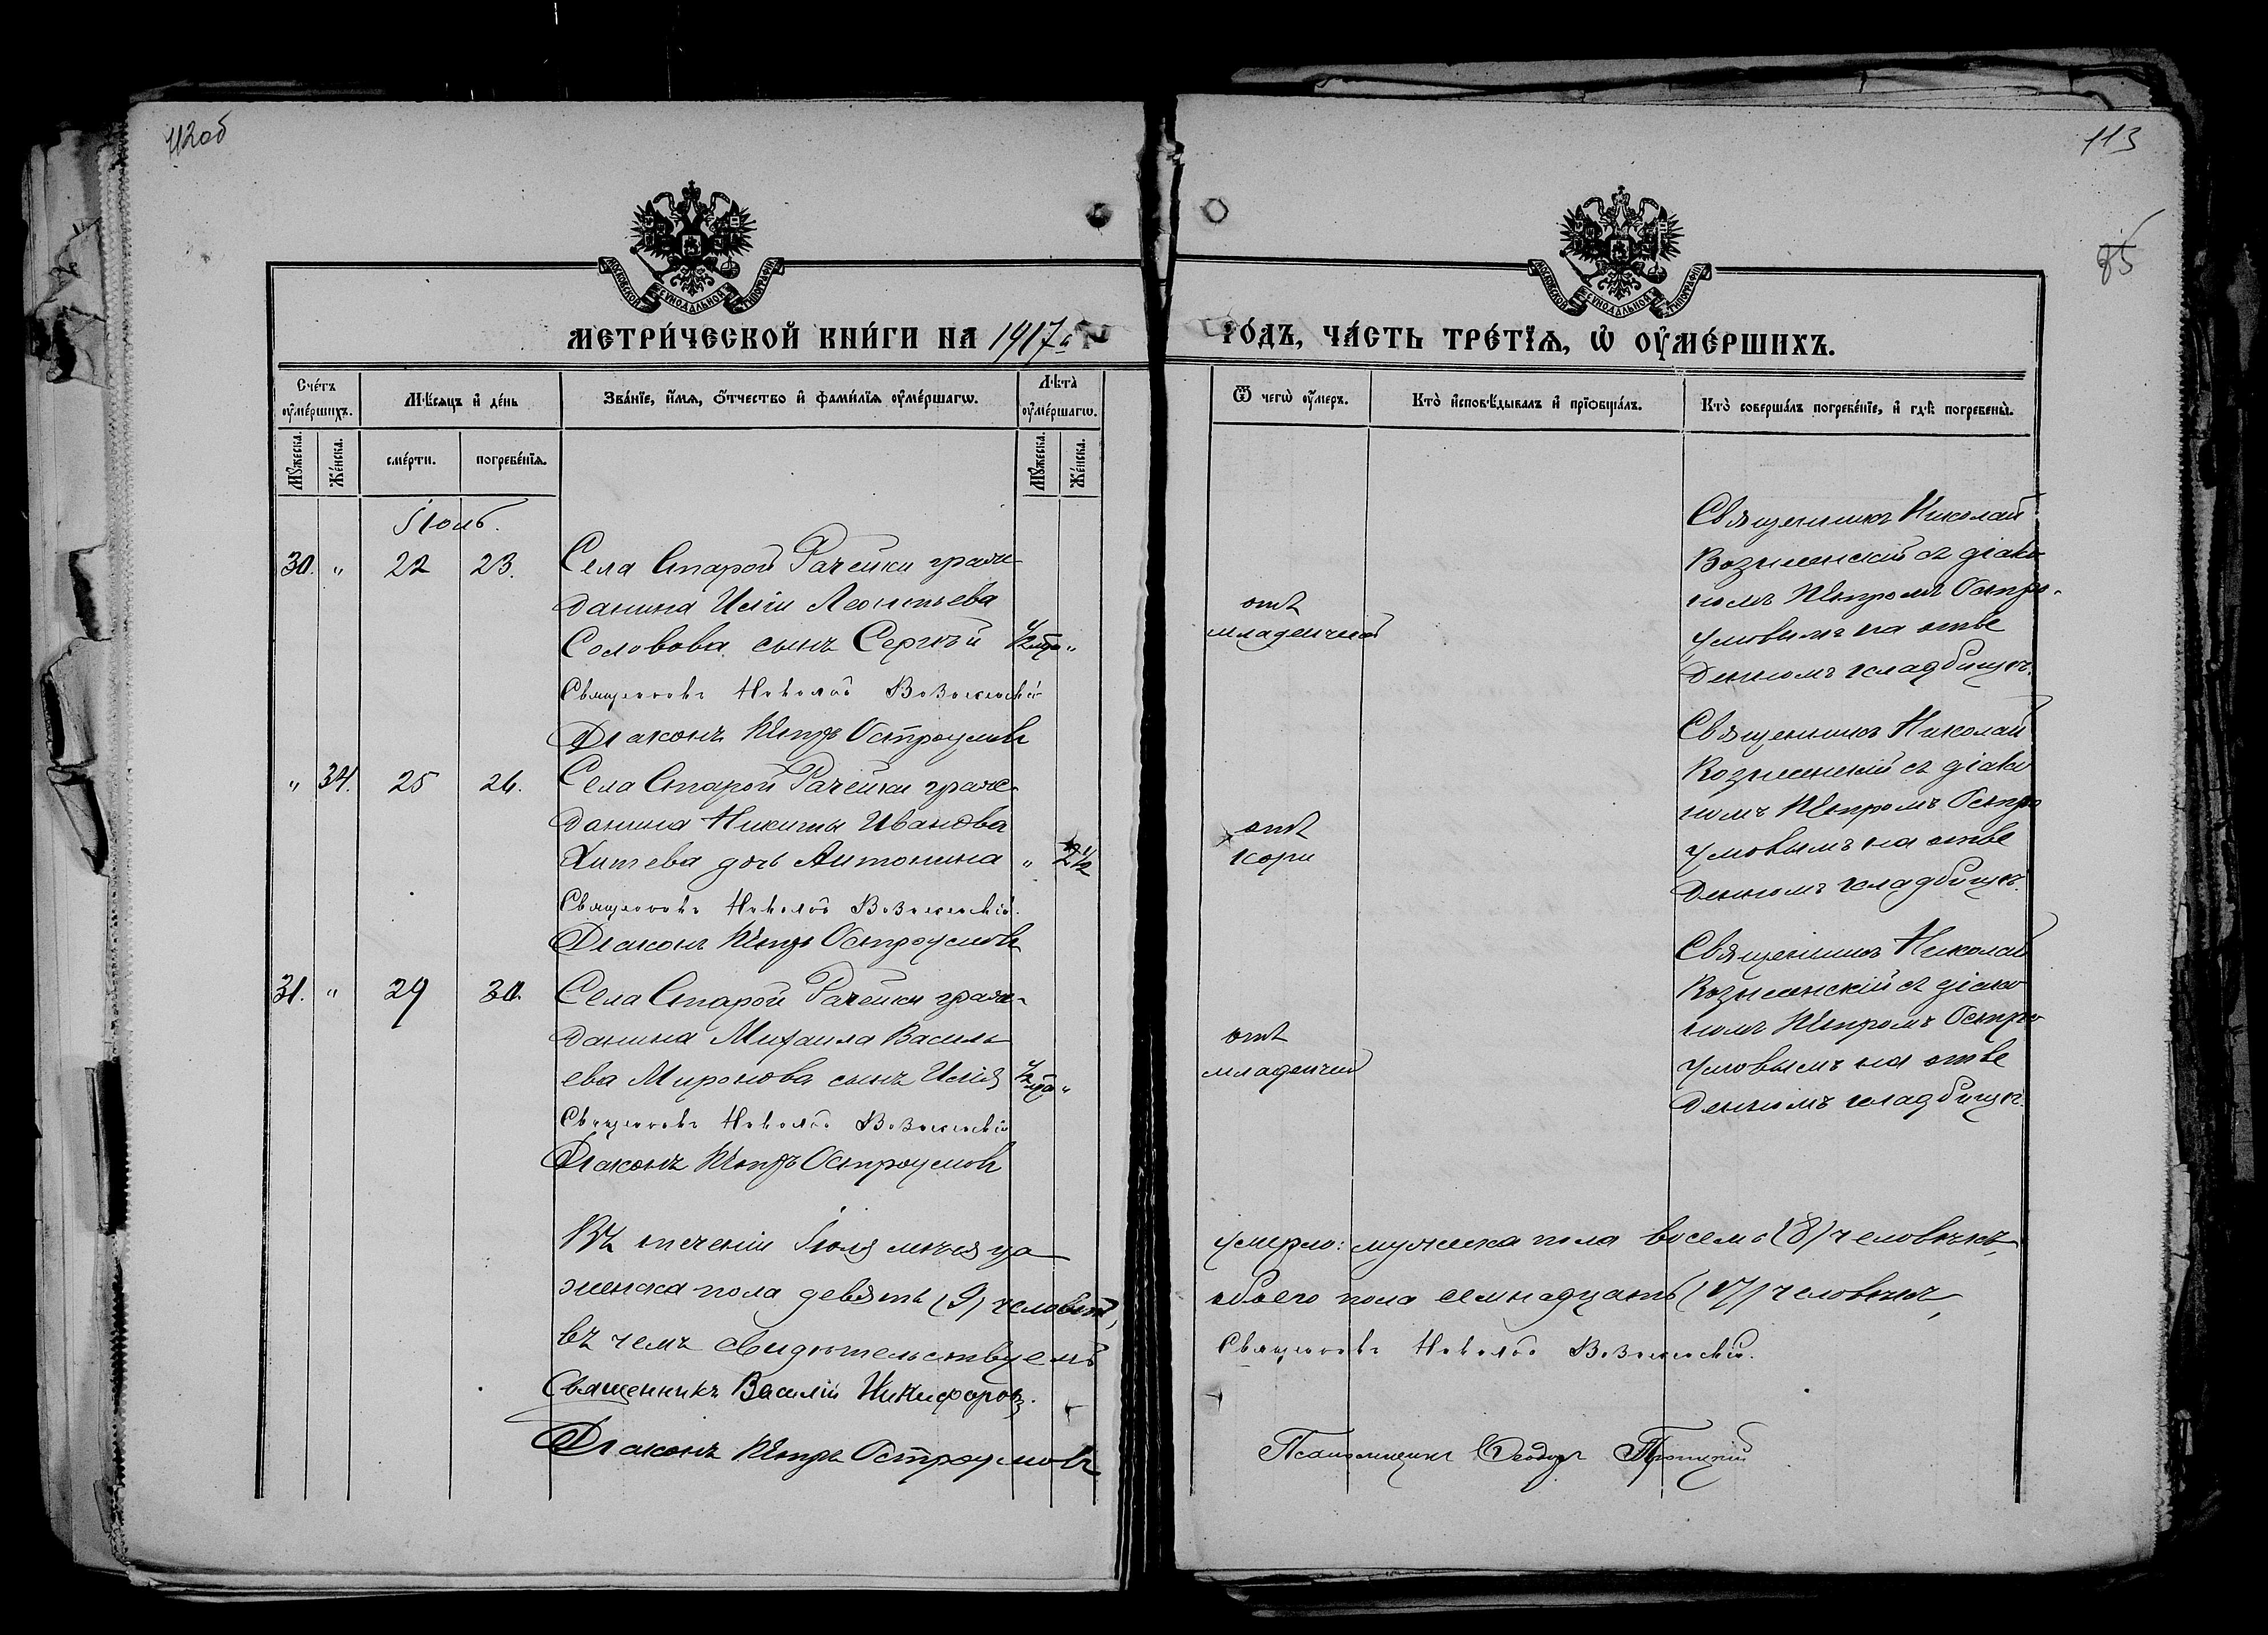 112об
113
85
МОСКОВСКОЙ СУНОДАЛЬНОЙ ТИПОГРАФІИ
МОСКОВСКОЙ СУНОДАЛЬНОЙ ТИПОГРАФІИ
МЕТРИ́ЧЕСКОЙ КНИ́ГИ НА 1917 г.
ГО́ДЪ, ЧА́СТЬ ТРЕ́ТЇѦ, Ѡ҆ ОУ҆МЕ́РШИХЪ.
Сче́тъ оу҆ме́ршихъ.
Мѣ́сѧцъ и҆ де́нь
Зва́нїе, и҆́мѧ, ѻ҆́тчество и҆ фами́лїѧ оу҆ме́ршагѡ.
Лѣ́та оу҆ме́ршагѡ.
Ѿ чегѡ̀ оу҆́меръ.
Кто̀ и҆сповѣ́дывалъ и҆ прїѡбща́лъ.
Кто̀ соверша́лъ погребе́нїе, и҆ гдѣ̀ погребены̀.
Мꙋ́жеска.
Же́нска.
сме́рти.
погребе́нїѧ.
Мꙋ́жеска.
Же́нска.
Іюль.
30. " 22 23. Села Старой Рачейки граж-
данина Иліи Леонтьева
Соловова сынъ Сергѣй ½ "
Священникъ Николай Вознесенскій
Діаконъ Петръ Остроумовъ
отъ
младенчской
Священникъ Николай
Вознесенскій съ діако-
номъ Петромъ Остро-
умовымъ на отве
денномъ кладбищѣ.
" 34. 25 26. Села Старой Рачейки граж-
данина Никиты Иванова
Хитева дочь Антонина " 2½
Священникъ Николай Вознесенскій.
Діаконъ Петръ Остроумовъ
отъ
кори
Священникъ Николай
Вознесенскій съ діако
номъ Петромъ Остро
умовымъ на отве
денномъ кладбищѣ.
31. " 29 30. Села Старой Рачейки граж-
данина Михаила Василь-
ева Миронова сынъ Илія ½ "
Священникъ Николай Вознесенскій
Діаконъ Петръ Остроумовъ
отъ
младенчской
Священникъ Николай
Вознесенскій съ діако
номъ Петромъ Остро
умовымъ на отве
денномъ кладбищѣ.
Въ теченіи Іюля мѣсяца умерло: мужска пола восемь (8) человѣкъ,
женска пола девять (9) человѣкъ, обоего пола семнадцать (17) человѣкъ,
въ чемъ свидѣтельствуемъ Священникъ Николай Вознесенскій.
Священникъ Василій Никифоровъ.
Діаконъ Петръ Остроумовъ
Псаломщикъ Ѳеодоръ Троицкій